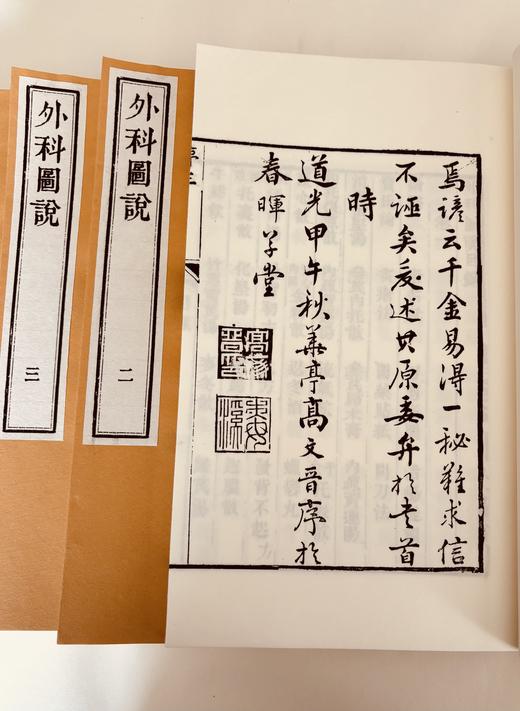 焉諺云千金易得一秘難求信
不誣矣爰述其原委弁於卷首
時
道光甲午秋華亭高文晉序於
春暉草堂
外科圖說
二
外科圖說
三